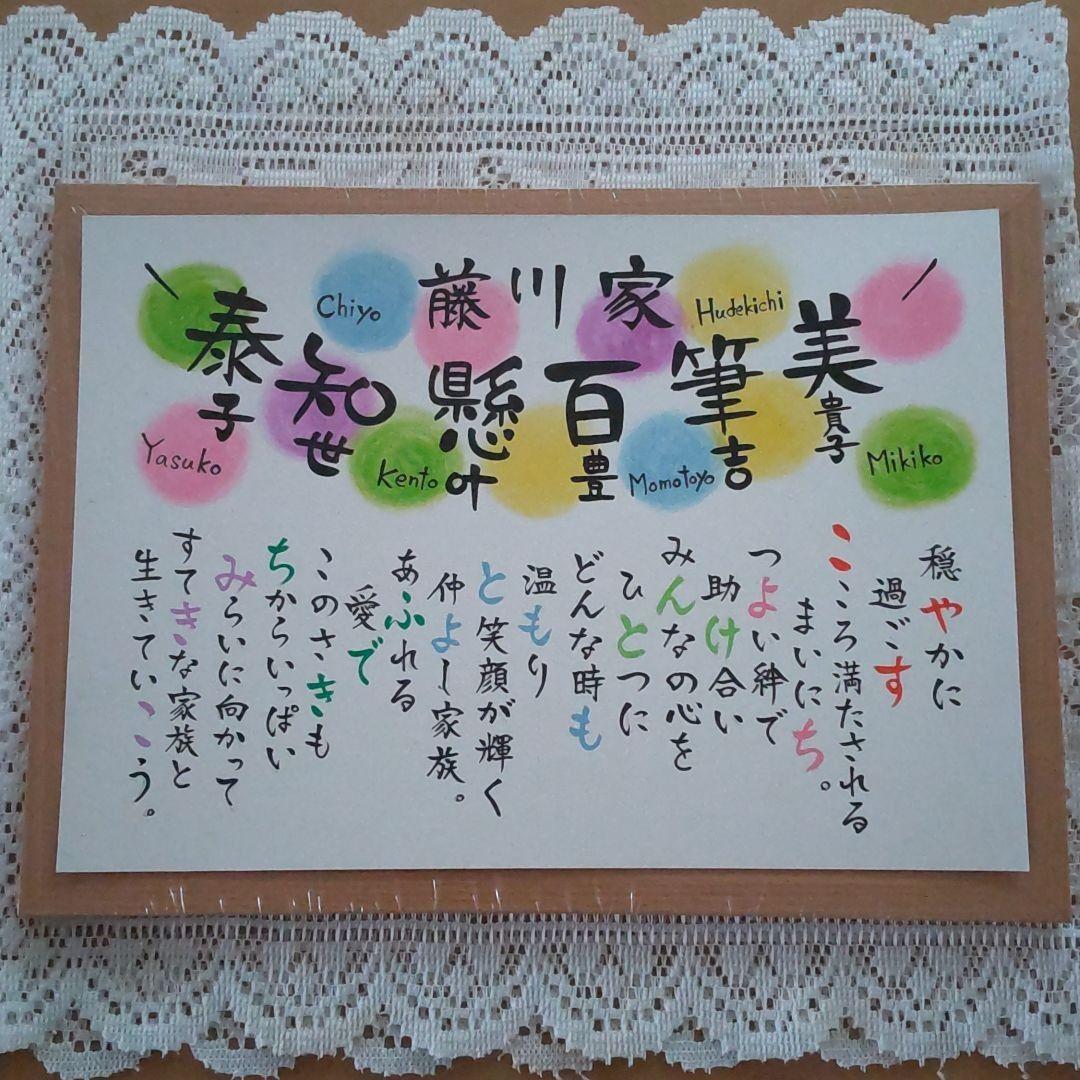 藤川家
美貴子
Mikiko
筆吉
Hudekichi
百豊
Momotoyo
懸叶
Kento
知世
Chiyo
泰子
Yasuko
穏やかに
過ごす
こころ満たされる
まいにち。
つよい絆で
助け合い
みんなの心を
ひとつに
どんな時も
温もり
と笑顔が輝く
仲よし家族。
あふれる
愛で
このさきも
ちからいっぱい
みらいに向かって
すてきな家族と
生きていこう。